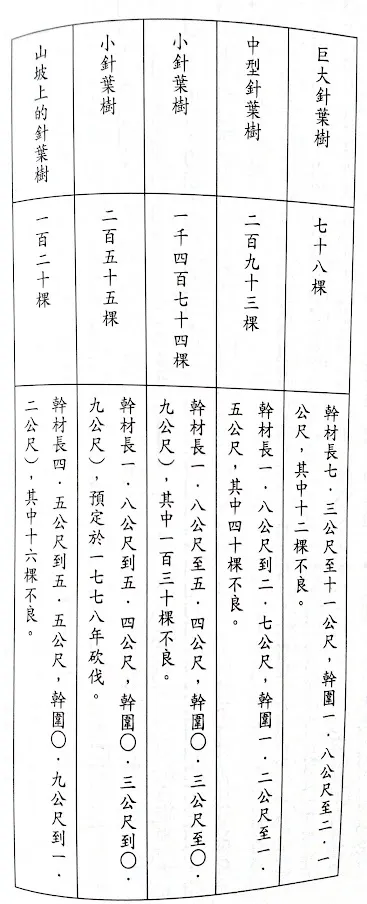 巨大針葉樹
七十八棵
幹材長七．三公尺至十一公尺，幹圍一．八公尺至二．一
公尺，其中十二棵不良。
中型針葉樹
二百九十三棵
幹材長一．八公尺到二．七公尺，幹圍一．二公尺至一．
五公尺，其中四十棵不良。
小針葉樹
一千四百七十四棵
幹材長一．八公尺至五．四公尺，幹圍〇．三公尺至〇．
九公尺），其中一百三十棵不良。
小針葉樹
二百五十五棵
幹材長一．八公尺到五．四公尺，幹圍〇．三公尺到〇．
九公尺），預定於一七七八年砍伐。
山坡上的針葉樹
一百二十棵
幹材長四．五公尺到五．五公尺，幹圍〇．九公尺到一．
二公尺），其中十六棵不良。